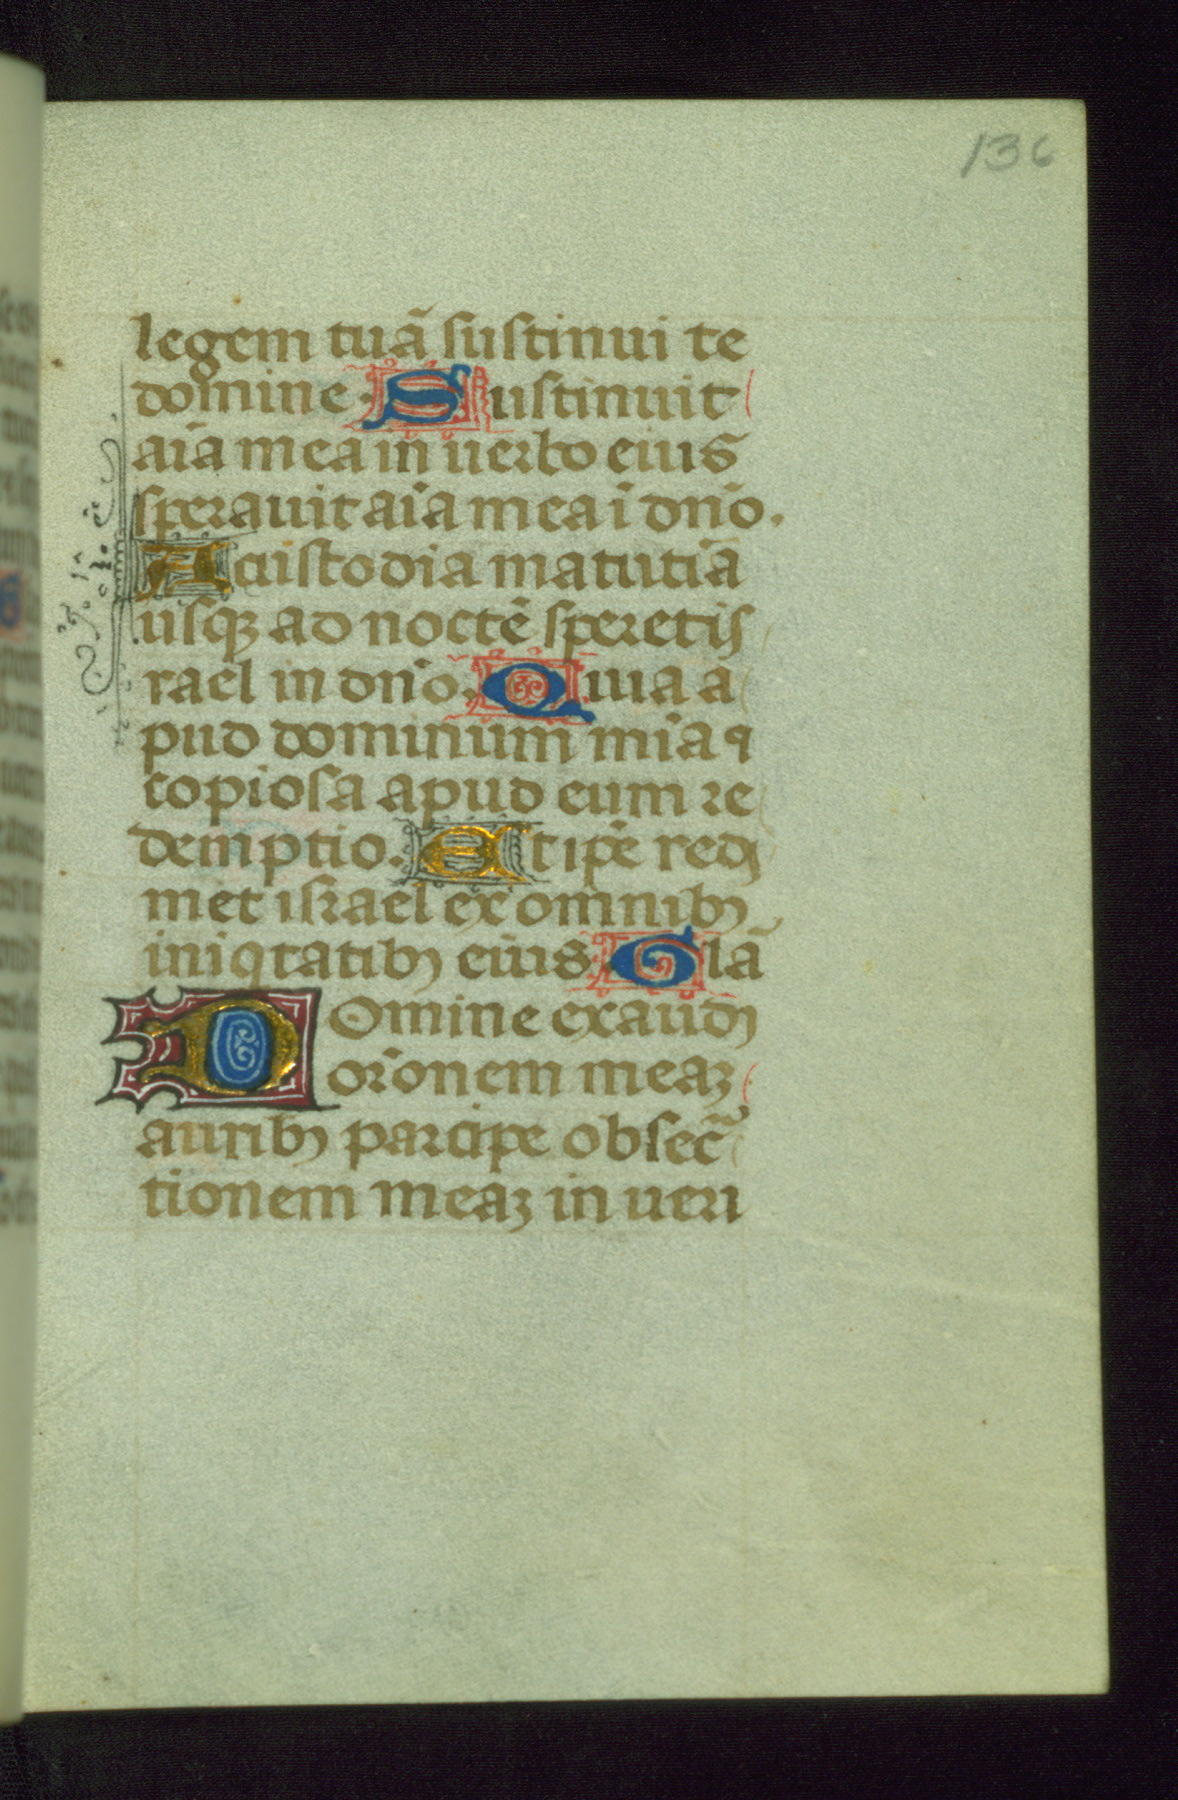 136
legem tuā sustinui te
domine. Sustinuit
aīa mea in uerbo eius
sperauit aīa mea ī dnō.
A custodia matutīa
usqꝫ ad noctē speretis
rael in dnō. Quia a
pud dominum mīa ꝙ
copiosa apud eum re
demptio. Et ip̄e redi
met israel ex omnibꝫ
iniqtatibꝫ eius. Glā
Domine exaudi
or̄onem meaꝫ
auribꝫ parcipe obsec̄
tionem meaꝫ in ueri